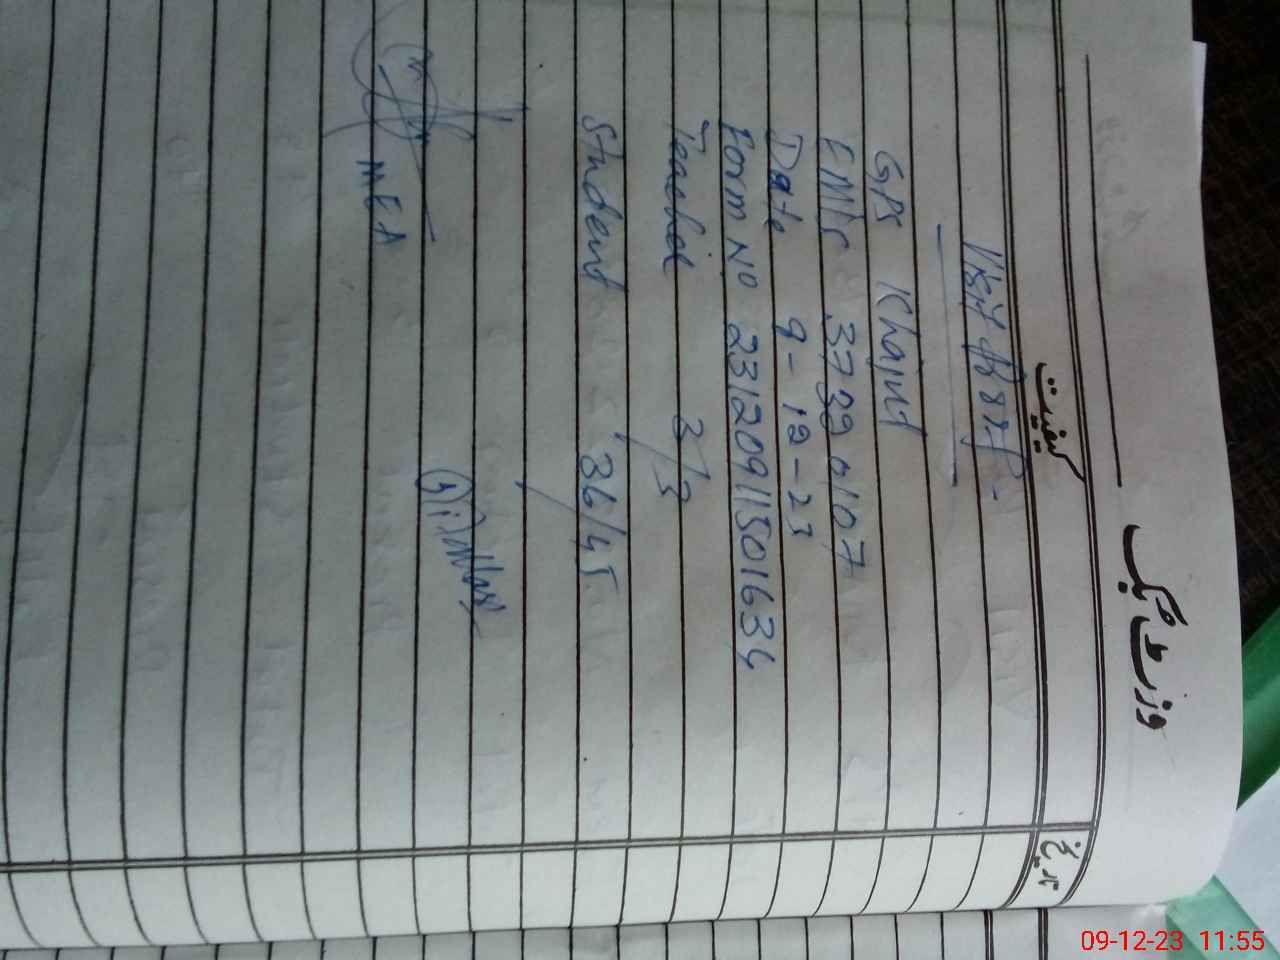 وزٹ بک
کیفیت
تاریخ
GPS Khajut
EMIS 37390107
Date 9-12-23
Form No 23120911501634
Teacher 3/3
Student 36/45
MEA
09-12-23 11:55